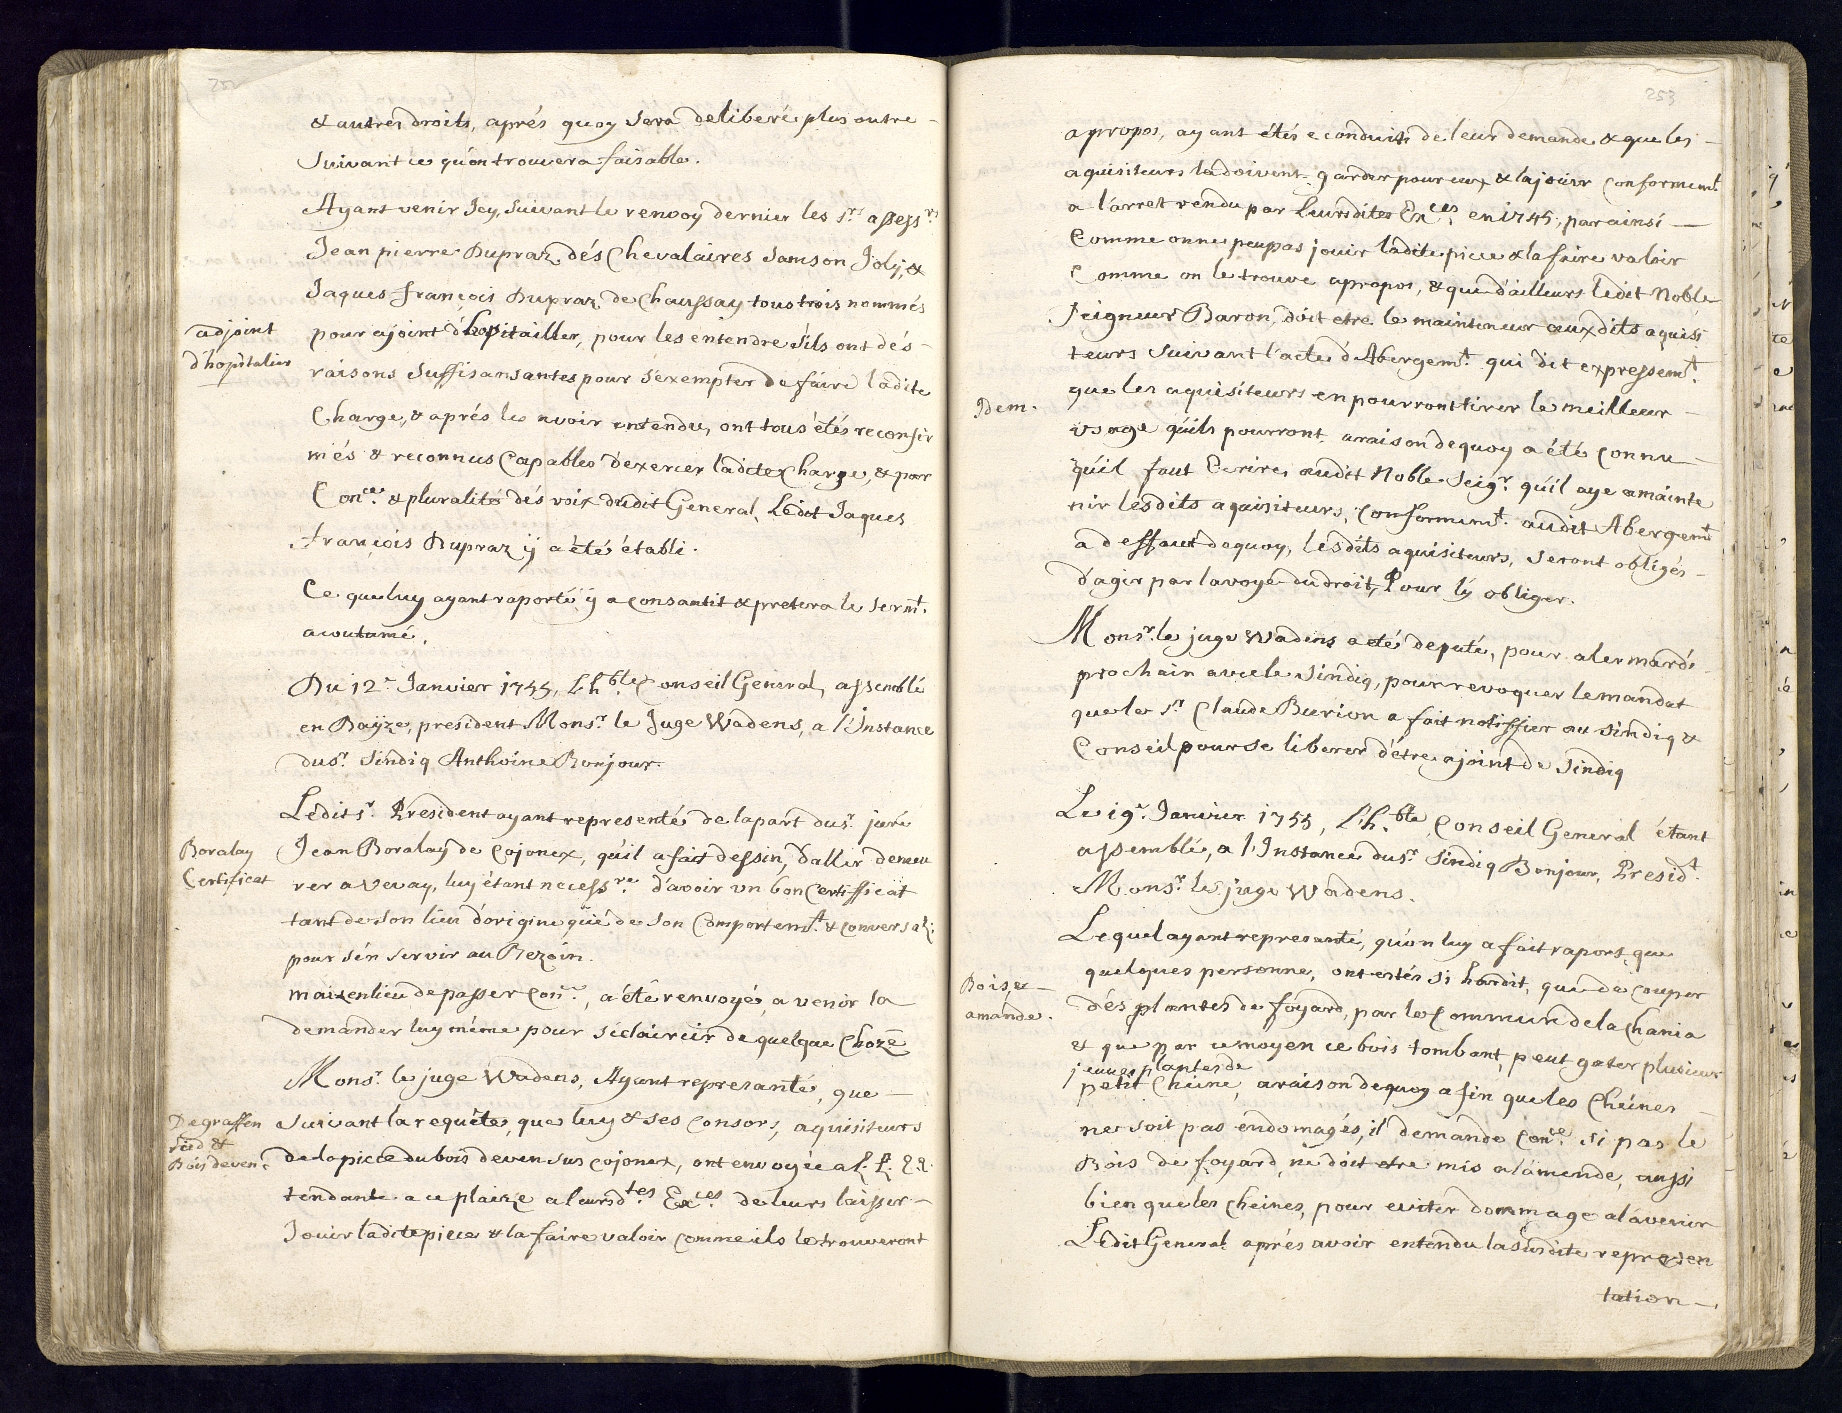 252
& autres droits, aprés quoy sera deliberé plus outre
suivant ce qu'on trouvera faisable.
Ayant venir Icy, suivant le renvoy dernier les Srs. assessrs.
Jean pierre Dupraz dés Chevalaires Samson Joly, &
Jaques françois Dupraz de Chaussay tous trois nommés
adjoint
d'hopitalier
pour ajoint d'hopitailler, pour les entendre s'ils ont dés
raisons suffisansantes pour s'exempter de faire ladite
Charge, & aprés les avoir entendu, ont tous étés reconfir
més & reconnus Capables d'exercer ladite Charge, & par
Conce. & pluralité dés voix dudit General, Ledit Jaques
françois Dupraz ÿ a été établi.
Ce que luy ayant raporté ÿ a consantit & pretera le sermt.
acoutumé.
Du 12e. Janvier 1755, Lhble. Conseil General, assemblé
en Baÿze, president Monsr. le Juge Wadens, a l'Instance
du sr. Sindiq Anthoine Bonjour.
Boralay
Certificat
Ledit sr. President ayant representé de la part du sr. juré
Jean Boralaÿ de Cojonex, qu'il a fait dessin, d'aller demeu
rer a Vevay, luy étant necessre. d'avoir un bon Certifficat
tant de son lieu d'origine que de son Comportemt. & conversa.
pour s'en servir au Bezoin.
mais en lieu de passer Conce., a été renvoyé, a venir la
demander luy méme pour s'éclaircir de quelque Choze
Monsr. le juge Wadens, Ayant represanté, que
Degraffen
ried &
Bois deven
suivant la requéte, que luy & ses Consors, aquisiteurs
de la piece du bois deven sus cojonex, ont envoyée a L. L. E. E.
tendante a ce plaize a leursdtes. Exces. de leurs laisser
Jouir ladite piece & la faire valoir comme ils le trouveront
253
apropos, ayant étés econduits de leur demande & que les
aquisiteurs la doivent garder pour eux & la jouir Conformemt.
a l'arret rendu par Leursdites Exces. en 1745, par ainsi
Comme on ne peu pas jouir ladite piece & la faire valoir
Comme on le trouve apropos, & que d'ailleurs ledit Noble
Seigneur Baron doit etre le mainteneur auxdits aquisi
teurs suivant l'acte d'Abergemt. qui dit expressemt.
Idem.
que les aquisiteurs en pourront tirer le meilleur
usage qu'ils pourront, a raison dequoy a été connu
qu'il faut Ecrire, audit Noble Seigr. qu'il aye a mainte
nir lesdits aquisiteurs, Conformemt. audit Abergemt.
a deffaut dequoy, lesdits aquisiteurs, seront obligés
d'agir par la voye du droit, Pour l'y obliger.
Monsr. le juge Wadens a eté deputé, pour aler mardi
prochain avec le Sindiq, pour revoquer le mandat
que le sr. Claude Burion a fait notiffier au Sindiq &
Conseil pour se liberer d'étre ajoint de Sindiq
Le 19e. Janvier 1755, L'h.ble Conseil General étant
assemblé, a l'Instance du sr. Sindiq Bonjour, Presidt.
Monsr. le juge Wadens.
Lequel ayant represanté, qu'on luy a fait raport que
Bois, &
amande.
quelques personne, ont estés si hardit, que de couper
dés plantes de foyard, par le Commun de la Chania
& que par ce moyen ce bois tombant, peut gater plusieur
jeunes plantes de
petit Cheine, a raison dequoy afin que les Cheines
ne soit pas endomagés, il demande Conce. si pas le
Bois de foyard ne doit etre mis a l'amende, aussi
bien que les Cheines, pour eviter dommage a l'avenir
Ledit General aprés avoir entendu la susdite represen
tation